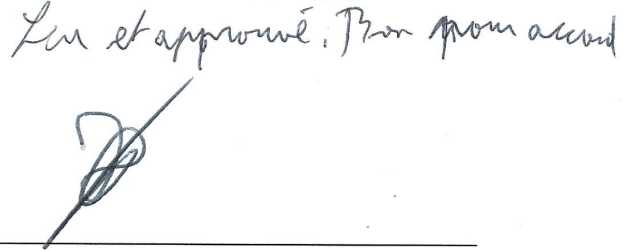 Lu et approuvé. Bon pour accord